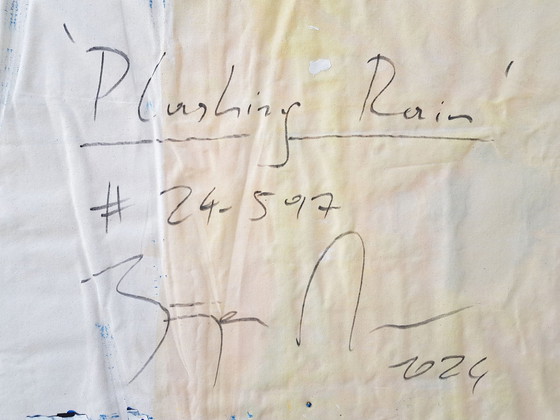 'Plashing Rain'
# 24-597
2024